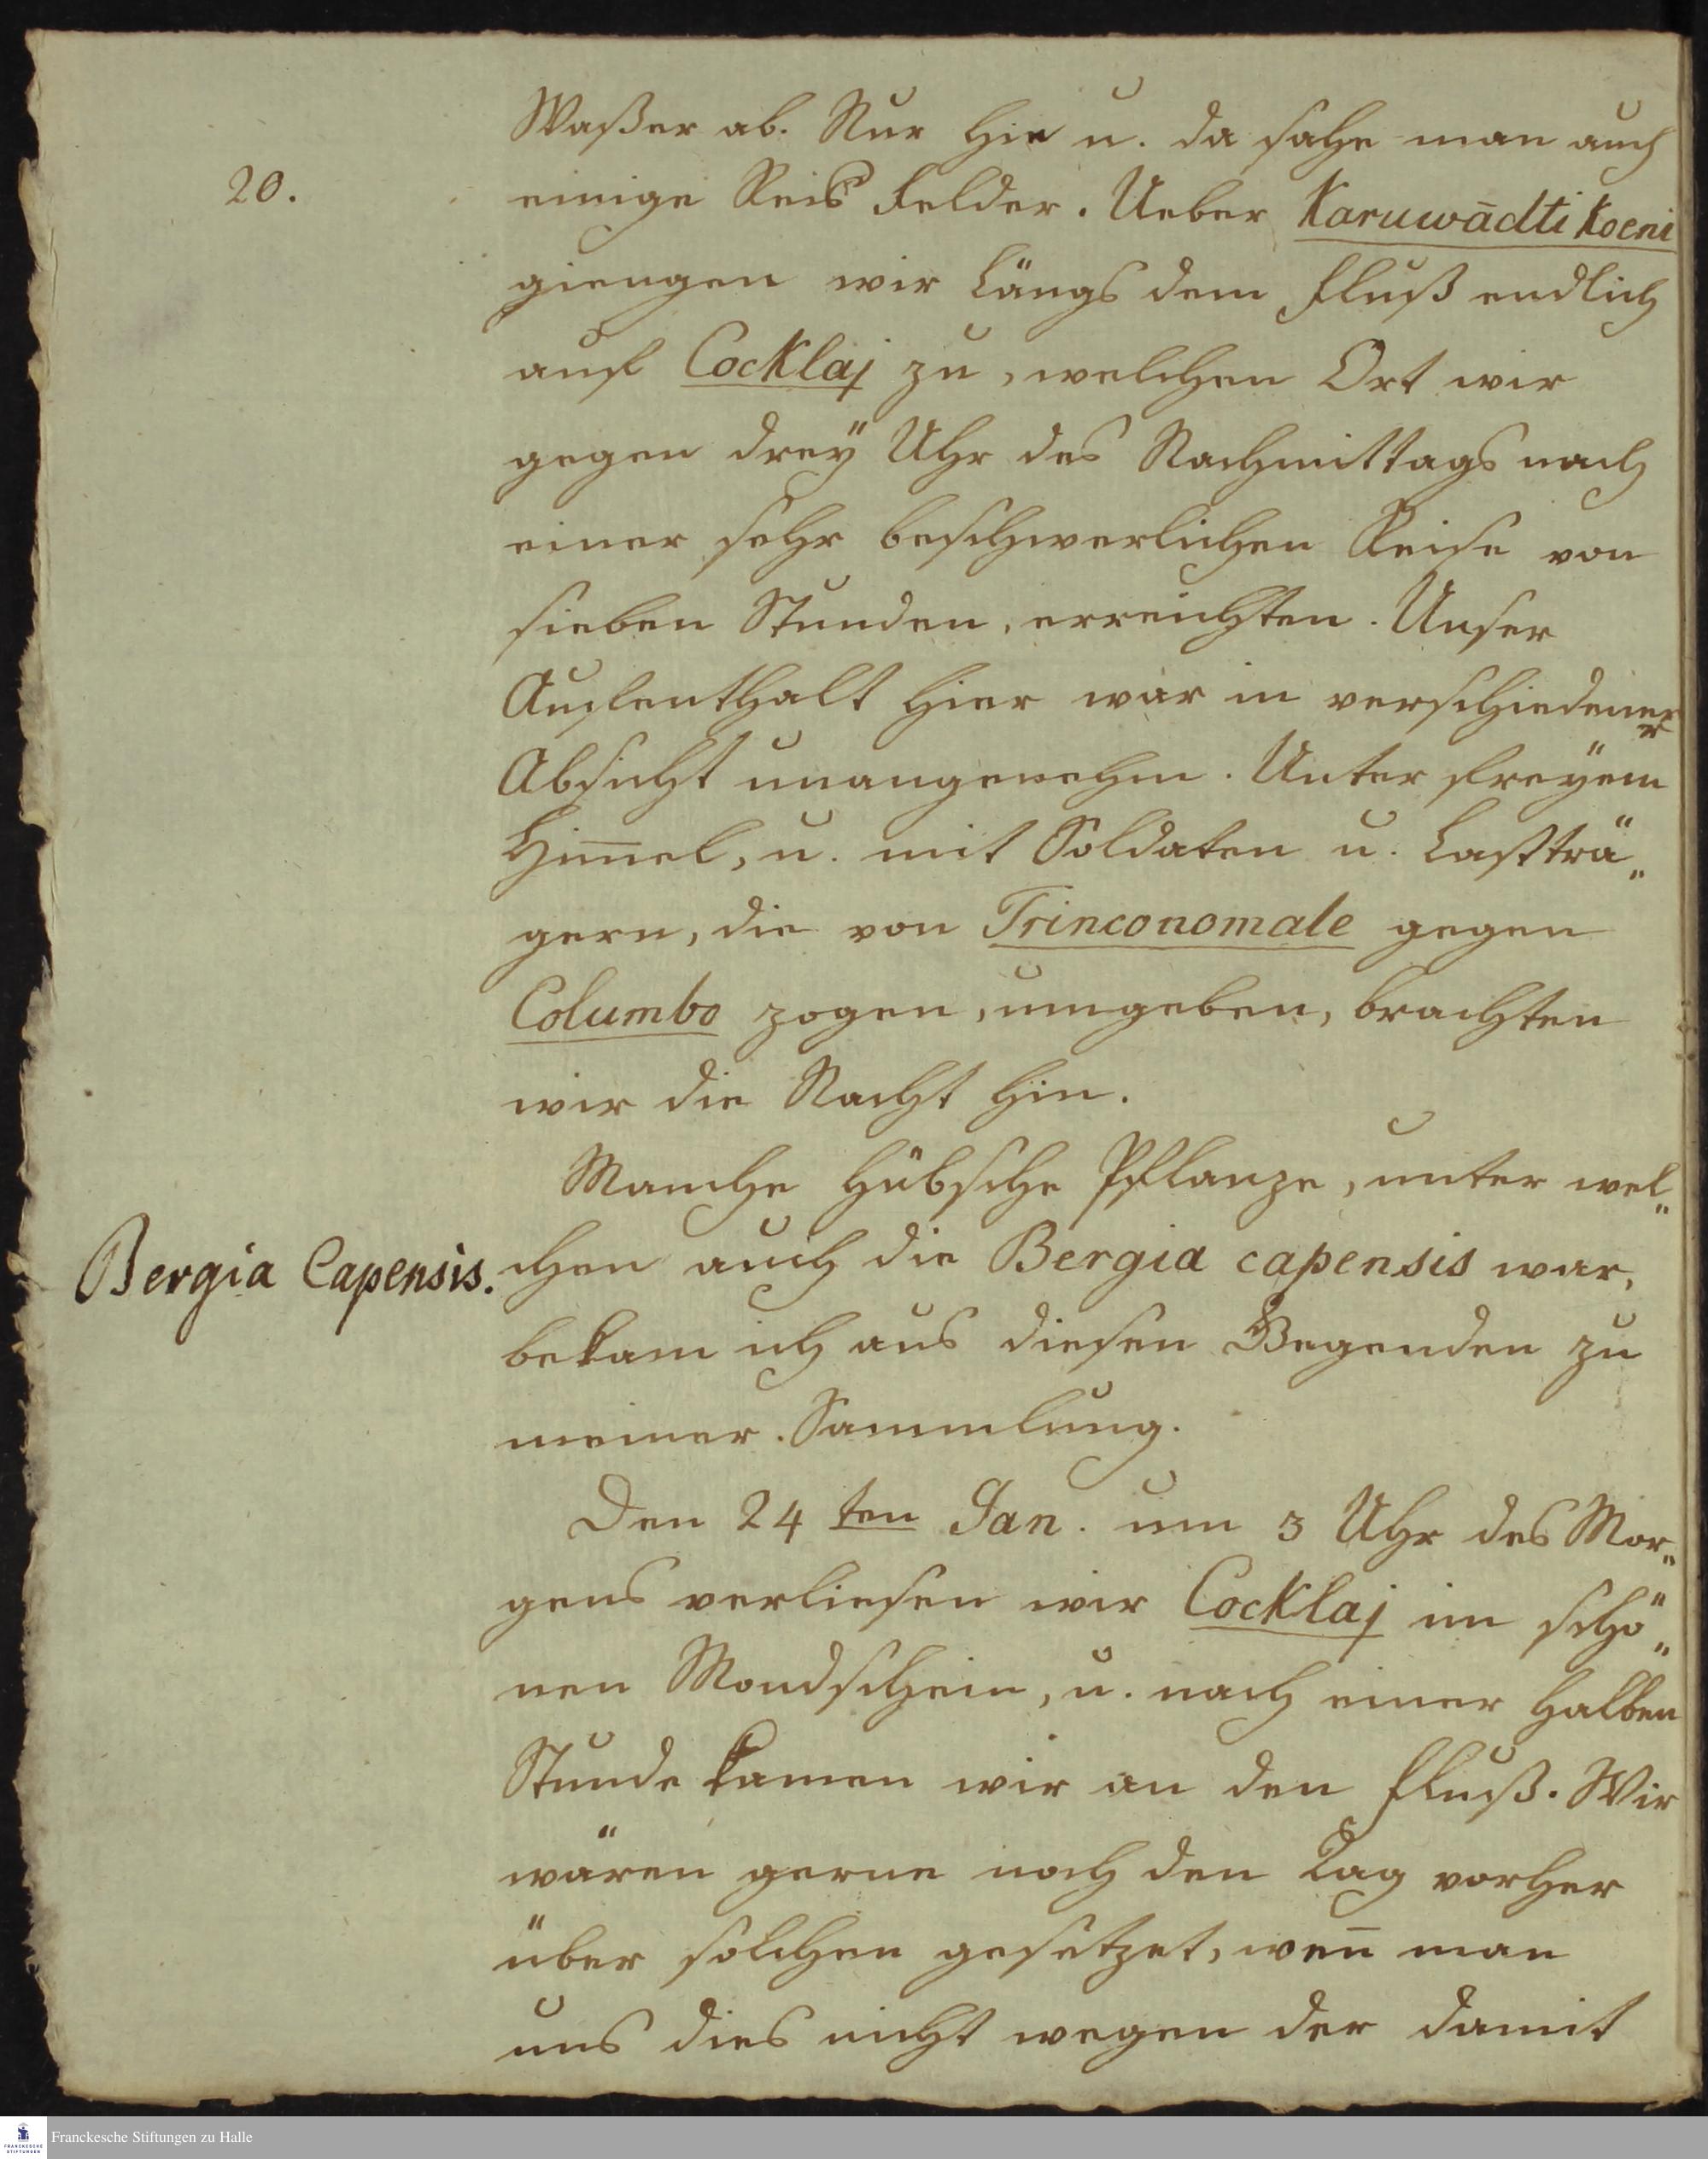 Waßer ab. Nur hie u. da sahe man auch
20.
einige Reis Felder. Ueber Karuwādti Koeni
giengen wir längs dem Fluß endlich
auf Cocklaj zu, welchen Ort wir
gegen dreÿ Uhr des Nachmittags nach
einer sehr beschwerlichen Reise von
sieben Stunden, erreichten. Unser
Aufenthalt hier war in verschiedener
Absicht unangenehm. Unter freÿem
Him̅el, u. mit Soldaten u. Lastträ„
gern, die von Trinconomale gegen
Columbo zogen, umgeben, brachten
wir die Nacht hin.
Manche hübsche Pflanze, unter wel„
Bergia Capensis.
chen auch die Bergia capensis war,
bekam ich aus diesen Gegenden zu
meiner Sammlung.
Den 24 ten Jan. um 3 Uhr des Mor„
gens verliesen wir Cocklaj im schö„
nen Mondschein, u. nach einer halben
Stunde kamen wir an den Fluß. Wir
wären gerne noch den Tag vorher
über solchen gesetzet, wen̅ man
uns dies nicht wegen der damit
FRANCKESCHE
STIFTUNGEN
Franckesche Stiftungen zu Halle